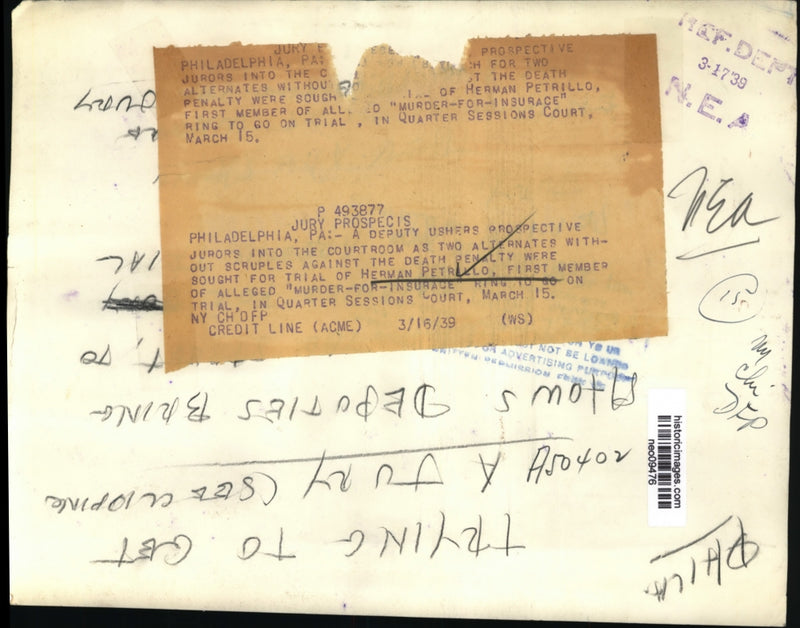 JURY
PROSPECTIVE
PHILADELPHIA, PA: FOR TWO
JURORS INTO THE THE DEATH
ALTERNATES OF HERMAN PETRILLO,
PENALTY WERE SOUGH
FIRST MEMBER OF "MURDER-FOR-INSURACE"
RING TO GO ON TRIAL , IN QUARTER SESSIONS COURT,
MARCH 15.
P 493877
JURY PROSPECIS
PHILADELPHIA, PA:- A DEPUTY USHERS PROSPECTIVE
JURORS INTO THE COURTROOM AS TWO ALTERNATES WITH-
OUT SCRUPLES AGAINST THE DEATH PENALTY WERE
SOUGHT FOR TRIAL OF HERMAN PETRILLO, FIRST MEMBER
OF ALLEGED "MURDER-FOR-INSURANCE" RING TO GO ON
TRIAL, IN QUARTER SESSIONS COURT, MARCH 15.
NY CH DFP
CREDIT LINE (ACME) 3/16/39 (WS)
REF. DEPT
3-17'39
N.E.A
NEA
15
NOT BE LOANED
FOR ADVERTISING PURPOSES
historicimages.com
neo09476
PHILA.
TRYING TO GET
A JURY (SEE CLIPPING
A50402
SHOWS DEPUTIES BRING
TO
JURY